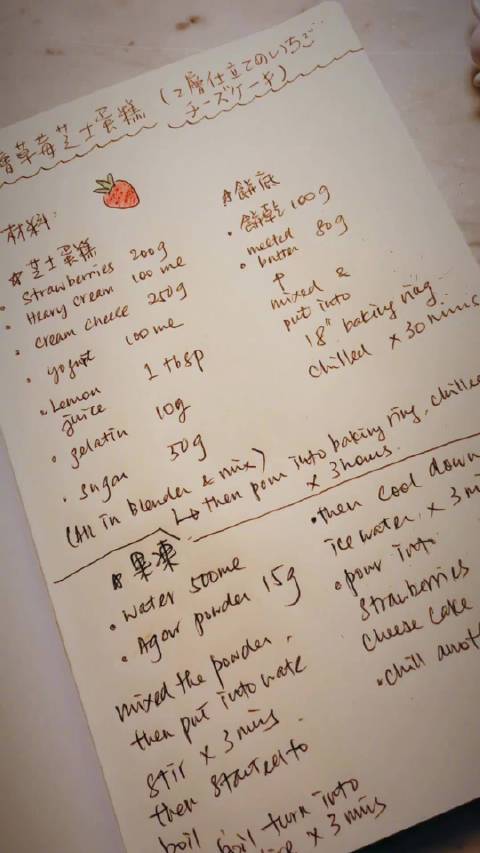 層草莓芝士蛋糕 (2層仕立てのいちご
チーズケーキ)
材料:
☆芝士蛋糕
• Strawberries 200g
• Heavy cream 100 ml
• cream cheese 250g
• yogurt 100 ml
• Lemon juice 1 tbsp
• gelatin 10g
• sugar 50g
(All in blender & mix)
↳ then pour into baking ring, chilled
× 3 hours.
☆餅底
• 餅乾 100g
• melted butter 80g
↑
mixed &
put into
18" baking ring
chilled × 30 mins
☆果凍
• Water 500ml
• Agar powder 15g
mixed the powder,
then put into wate
stir × 3 mins.
then started to
boil boil turn into
× 3 mins
• then cool down
ice water × 3 mi
• pour into
strawberries
cheese cake
• chill anoth